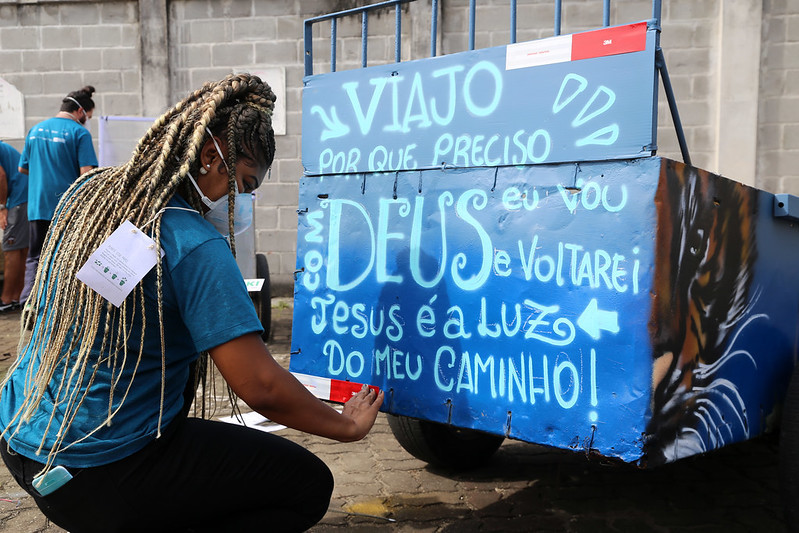 VIAJO
POR QUE PRECISO
COM DEUS EU VOU
E VOLTAREI
JESUS É A LUZ
DO MEU CAMINHO!